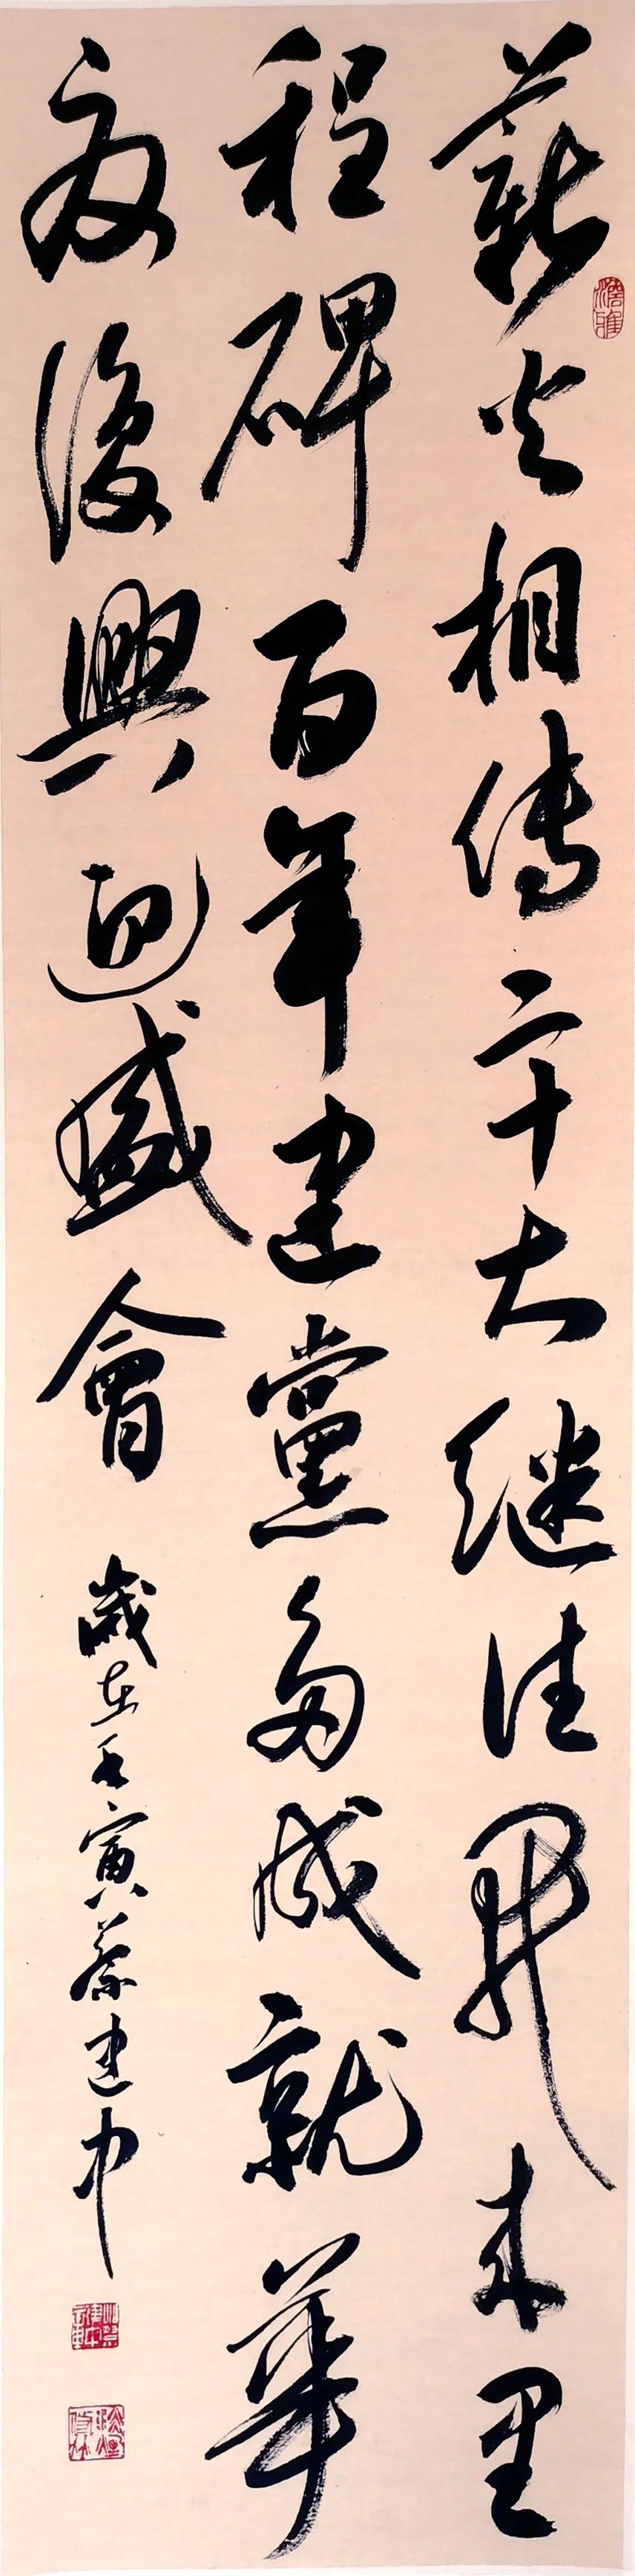 薪火相傳二十大继往開来里
程碑百年建黨多成就華
夏復興迎盛會
歲在壬寅蔡建中